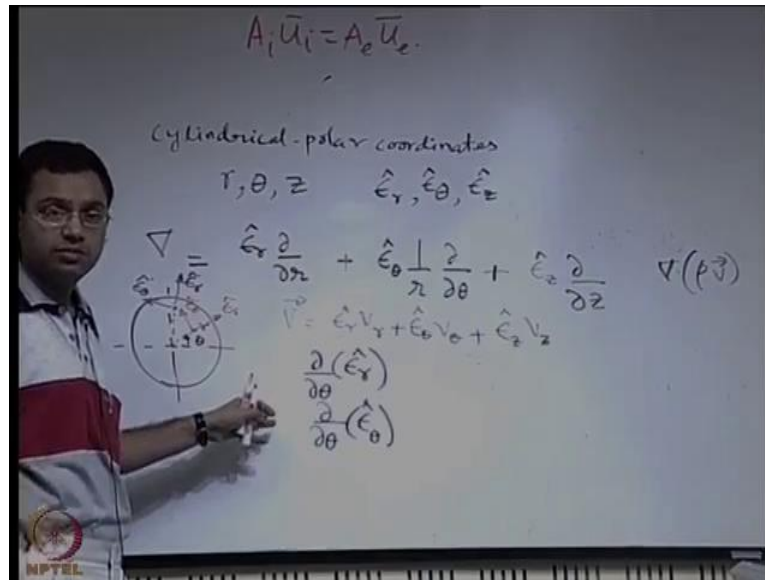 A_i ū_i = A_e ū_e.
Cylindrical-polar coordinates
r, θ, z ε̂_r, ε̂_θ, ε̂_z
∇ = ε̂_r ∂/∂r + ε̂_θ 1/r ∂/∂θ + ε̂_z ∂/∂z ∇·(ρv⃗)
V⃗ = ε̂_r V_r + ε̂_θ V_θ + ε̂_z V_z
∂/∂θ (ε̂_r)
∂/∂θ (ε̂_θ)
NPTEL